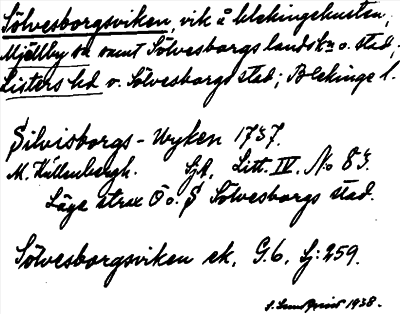 Sölvesborgsviken, vik å blekingekusten,
Mjällby sn samt Sölvesborgs landskn o. stad;
Listers hd o. Sölvesborgs stad; Blekinge l.
Silvisborgs-Wyken 1737.
M. Küllenbergh. Sjk. Litt. IV. No 83.
Läge strax Ö o. S Sölvesborgs stad.
Sölvesborgsviken ek. G.6. Sj: 259.
1938.